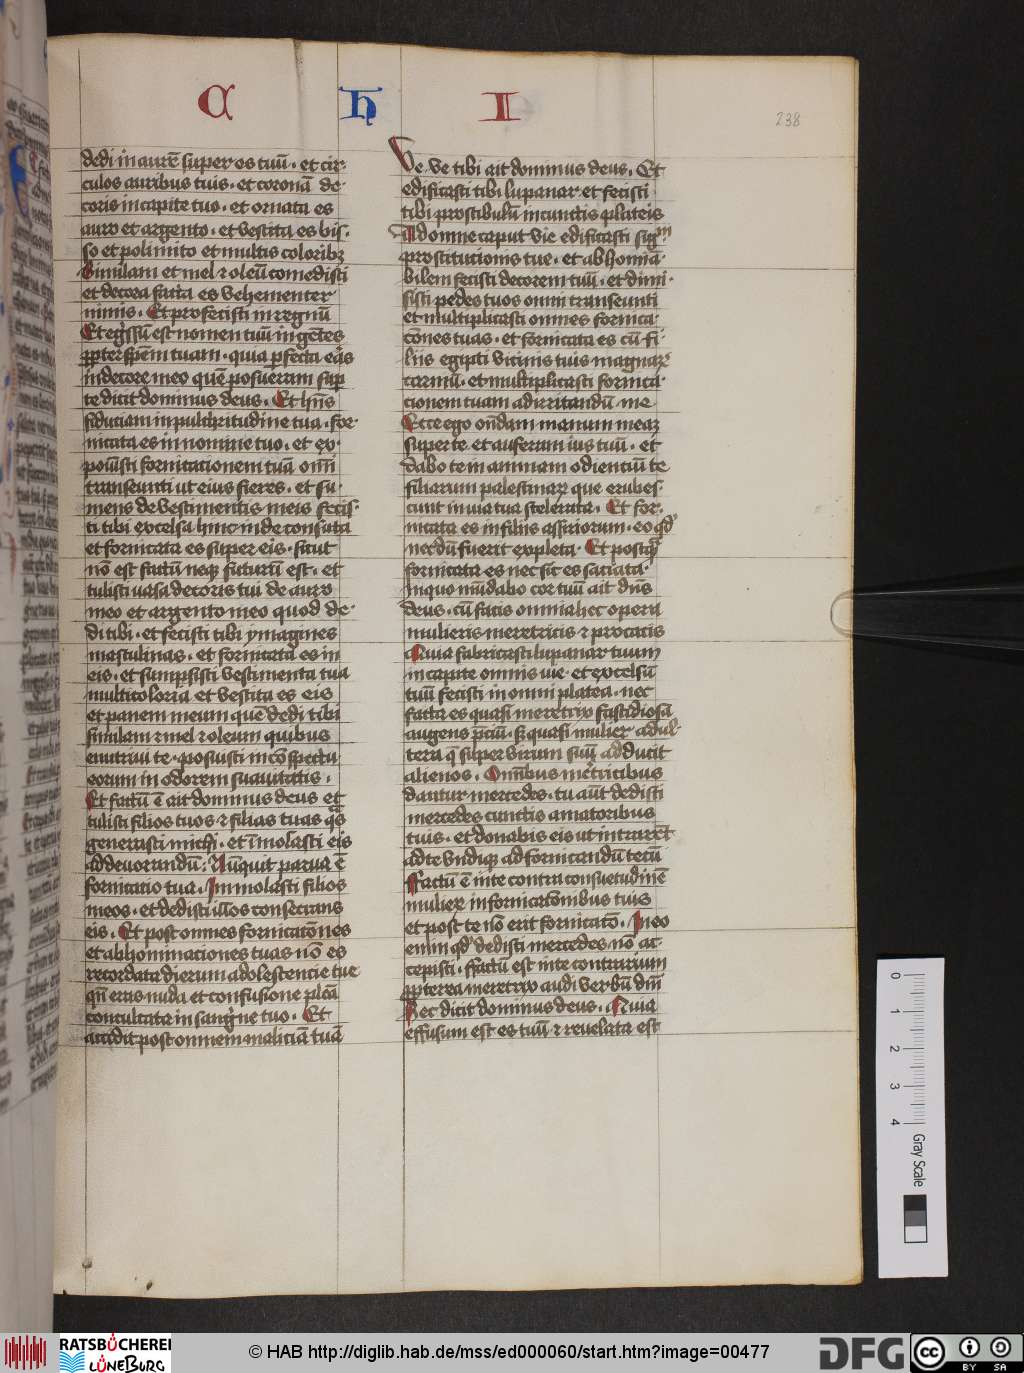 C h I
238
dedi inaurē super os tuū · et cir·
culos auribus tuis · et coronā de·
coris in capite tuo · et ornata es
auro et argento · et vestita es bis·
so et polimito et multis coloribꝫ
Similam et mel ⁊ oleū comedisti
et decora facta es vehementer
nimis · Et profecisti in regnū
Et egssū est nomen tuū in gētes
ꝓpter spēm tuam · quia ꝑfecta eras
in decore meo quē posueram sup
te dicit dominus deus · Et hn̄s
fiduciam in pulchritudine tua · for·
nicata es in nomine tuo · et ex·
posuisti fornicationem tuā omī
transeunti ut eius fieres · et su·
mens de vestimentis meis fecis·
ti tibi excelsa hinc inde consuta
et fornicata es super eis · sicut
nō est factū neqꝫ futurū est · et
tulisti vasa decoris tui de auro
meo et argento meo quod de·
di tibi · et fecisti tibi ymagines
masculinas · et fornicata es in
eis · et sumpsisti vestimenta tua
multicoloria et vestita es eis
et panem meum quē dedi tibi
similam ⁊ mel ⁊ oleum quibus
enutriui te · posuisti in cōspectu
eorum in odorem suauitatis ·
Et factū ē ait dominus deus et
tulisti filios tuos ⁊ filias tuas qͣs
generasti michi · et īmolasti eis
ad deuorandū · Nūquit parua ē
fornicatio tua · Immolasti filios
meos · et dedisti illos consecrans
eis · Et post omnes fornicacōnes
et abhominaciones tuas nō es
recordata dierum adolescencie tue
qn̄ eras nuda et confusione plēā
conculcata in sangͥne tuo · Et
accidit post omnem maliciā tuā
Ve · ve tibi ait dominus deus · Et
edificasti tibi lupanar et fecisti
tibi prostibulū in cunctis plateis
Ad omne caput vie edificasti sigͫ
prostitucionis tue · et abhomīa·
bilem fecisti decorem tuū · et diui·
sisti pedes tuos omni transeunti
et multiplicasti omnes fornica·
cōnes tuas · et fornicata es cū fi·
liis egipti vicinis tuis magnaꝝ
carniū · et multiplicasti fornica·
cionem tuam ad irritandū me ·
Ecce ego on̄dam manum meaꝫ
super te · et auferam ius tuū · et
dabo te in animam odienciū te
filiarum palestinaꝝ que erubes·
cunt in via tua scelerata · Et for·
nicata es in filiis assiriorum · eo qd
necdū fuerit expleta · Et postqͣ
fornicata es nec sic es saciata ·
In quo mūdabo cor tuū ait dn̄s
deus · cū facis omnia hec opera
mulieris meretricis ⁊ procacis
Quia fabricasti lupanar tuum
in capite omnis vie · et excelsū
tuū fecisti in omni platea · nec
facta es quasi meretrix fastidiosā
augens p̄ciū · sꝫ quasi mulier adul·
tera q̄ super virum suū adducit
alienos · Omībus me͛tricibus
dantur mercedes · tu aūt dedisti
mercedes cunctis amatoribus
tuis · et donabis eis ut intrarēt
ad te vndiqꝫ ad fornicandū tecū
ffactū ē in te contra consuetudinē
mulieꝝ in fornicacōnibus tuis
et post te nō erit fornicatō · In eo
enim qd dedisti mercedes nō ac·
cepisti · ffactū est in te contrarium
ꝓpterea meretrix audi verbū dn̄i
Hec dicit dominus deus · Quia
effusum est es tuū ⁊ reuelata est
0
1
2
3
4
Gray Scale
RATSBÜCHEREI
LÜNEBURG
© HAB http://diglib.hab.de/mss/ed000060/start.htm?image=00477
DFG
cc
BY SA